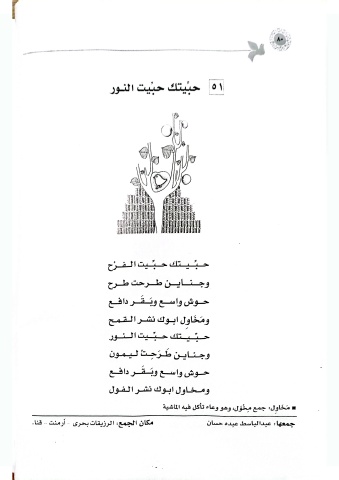 ٨٠
٥١ حبّيتك حبّيت النور
حبّيتك حبّيت الفرح
وجناين طرحت طرح
حوش واسع وبَقَر دافع
ومخاول ابوك نشر القمح
حبّيتك حبّيت النور
وجناين طَرَحِتْ ليمون
حوش واسع وبَقَر دافع
ومخاول ابوك نشر الفول
■ مَخاول: جمع مِخْوَل، وهو وعاء تأكل فيه الماشية
جمعها: عبدالباسط عبده حسان مكان الجمع: الرزيقات بحرى - أرمنت - قنا.